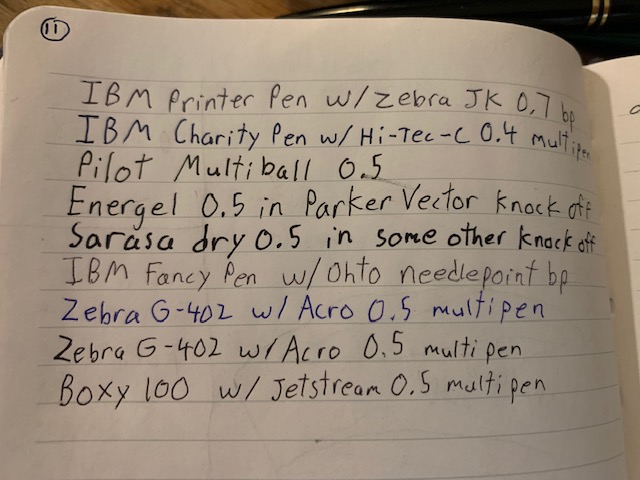 11
IBM Printer Pen w/ Zebra JK 0.7 bp
IBM Charity Pen w/ Hi-Tec-C 0.4 multipen
Pilot Multiball 0.5
Energel 0.5 in Parker Vector knock off
Sarasa dry 0.5 in some other knock off
IBM Fancy Pen w/ Ohto needlepoint bp
Zebra G-402 w/ Acro 0.5 multipen
Zebra G-402 w/ Acro 0.5 multi pen
Boxy 100 w/ Jetstream 0.5 multi pen